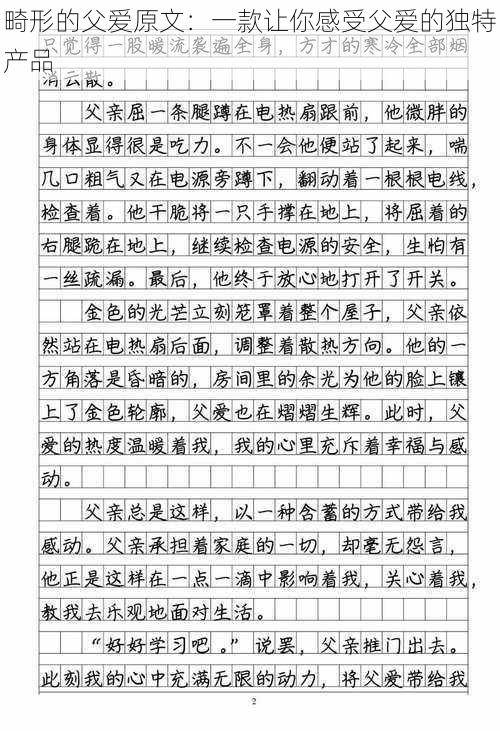 畸形的父爱原文：一款让你感受父爱的独特
产品
只觉得一股暖流袭遍全身，方才的寒冷全部烟
消云散。
父亲屈一条腿蹲在电热扇跟前，他微胖的
身体显得很是吃力。不一会他便站了起来，喘
几口粗气又在电源旁蹲下，翻动着一根根电线，
检查着。他干脆将一只手撑在地上，将屈着的
右腿跪在地上，继续检查电源的安全，生怕有
一丝疏漏。最后，他终于放心地打开了开关。
金色的光芒立刻笼罩着整个屋子，父亲依
然站在电热扇后面，调整着散热方向。他的一
方角落是昏暗的，房间里的余光为他的脸上镶
上了金色轮廓，父爱也在熠熠生辉。此时，父
爱的热度温暖着我，我的心里充斥着幸福与感
动。
父亲总是这样，以一种含蓄的方式带给我
感动。父亲承担着家庭的一切，却毫无怨言，
他正是这样在一点一滴中影响着我，关心着我，
教我去乐观地面对生活。
“好好学习吧。”说罢，父亲推门出去。
此刻我的心中充满无限的动力，将父爱带给我
2